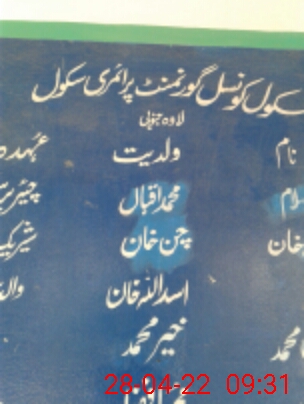 سکول کونسل گورنمنٹ پرائمری سکول
لاوہ جنوبی
نام ولدیت عہدہ
محمد اقبال
خان چمن خان شریک
اسد اللہ خان
محمد خیر محمد
28-04-22 09:31